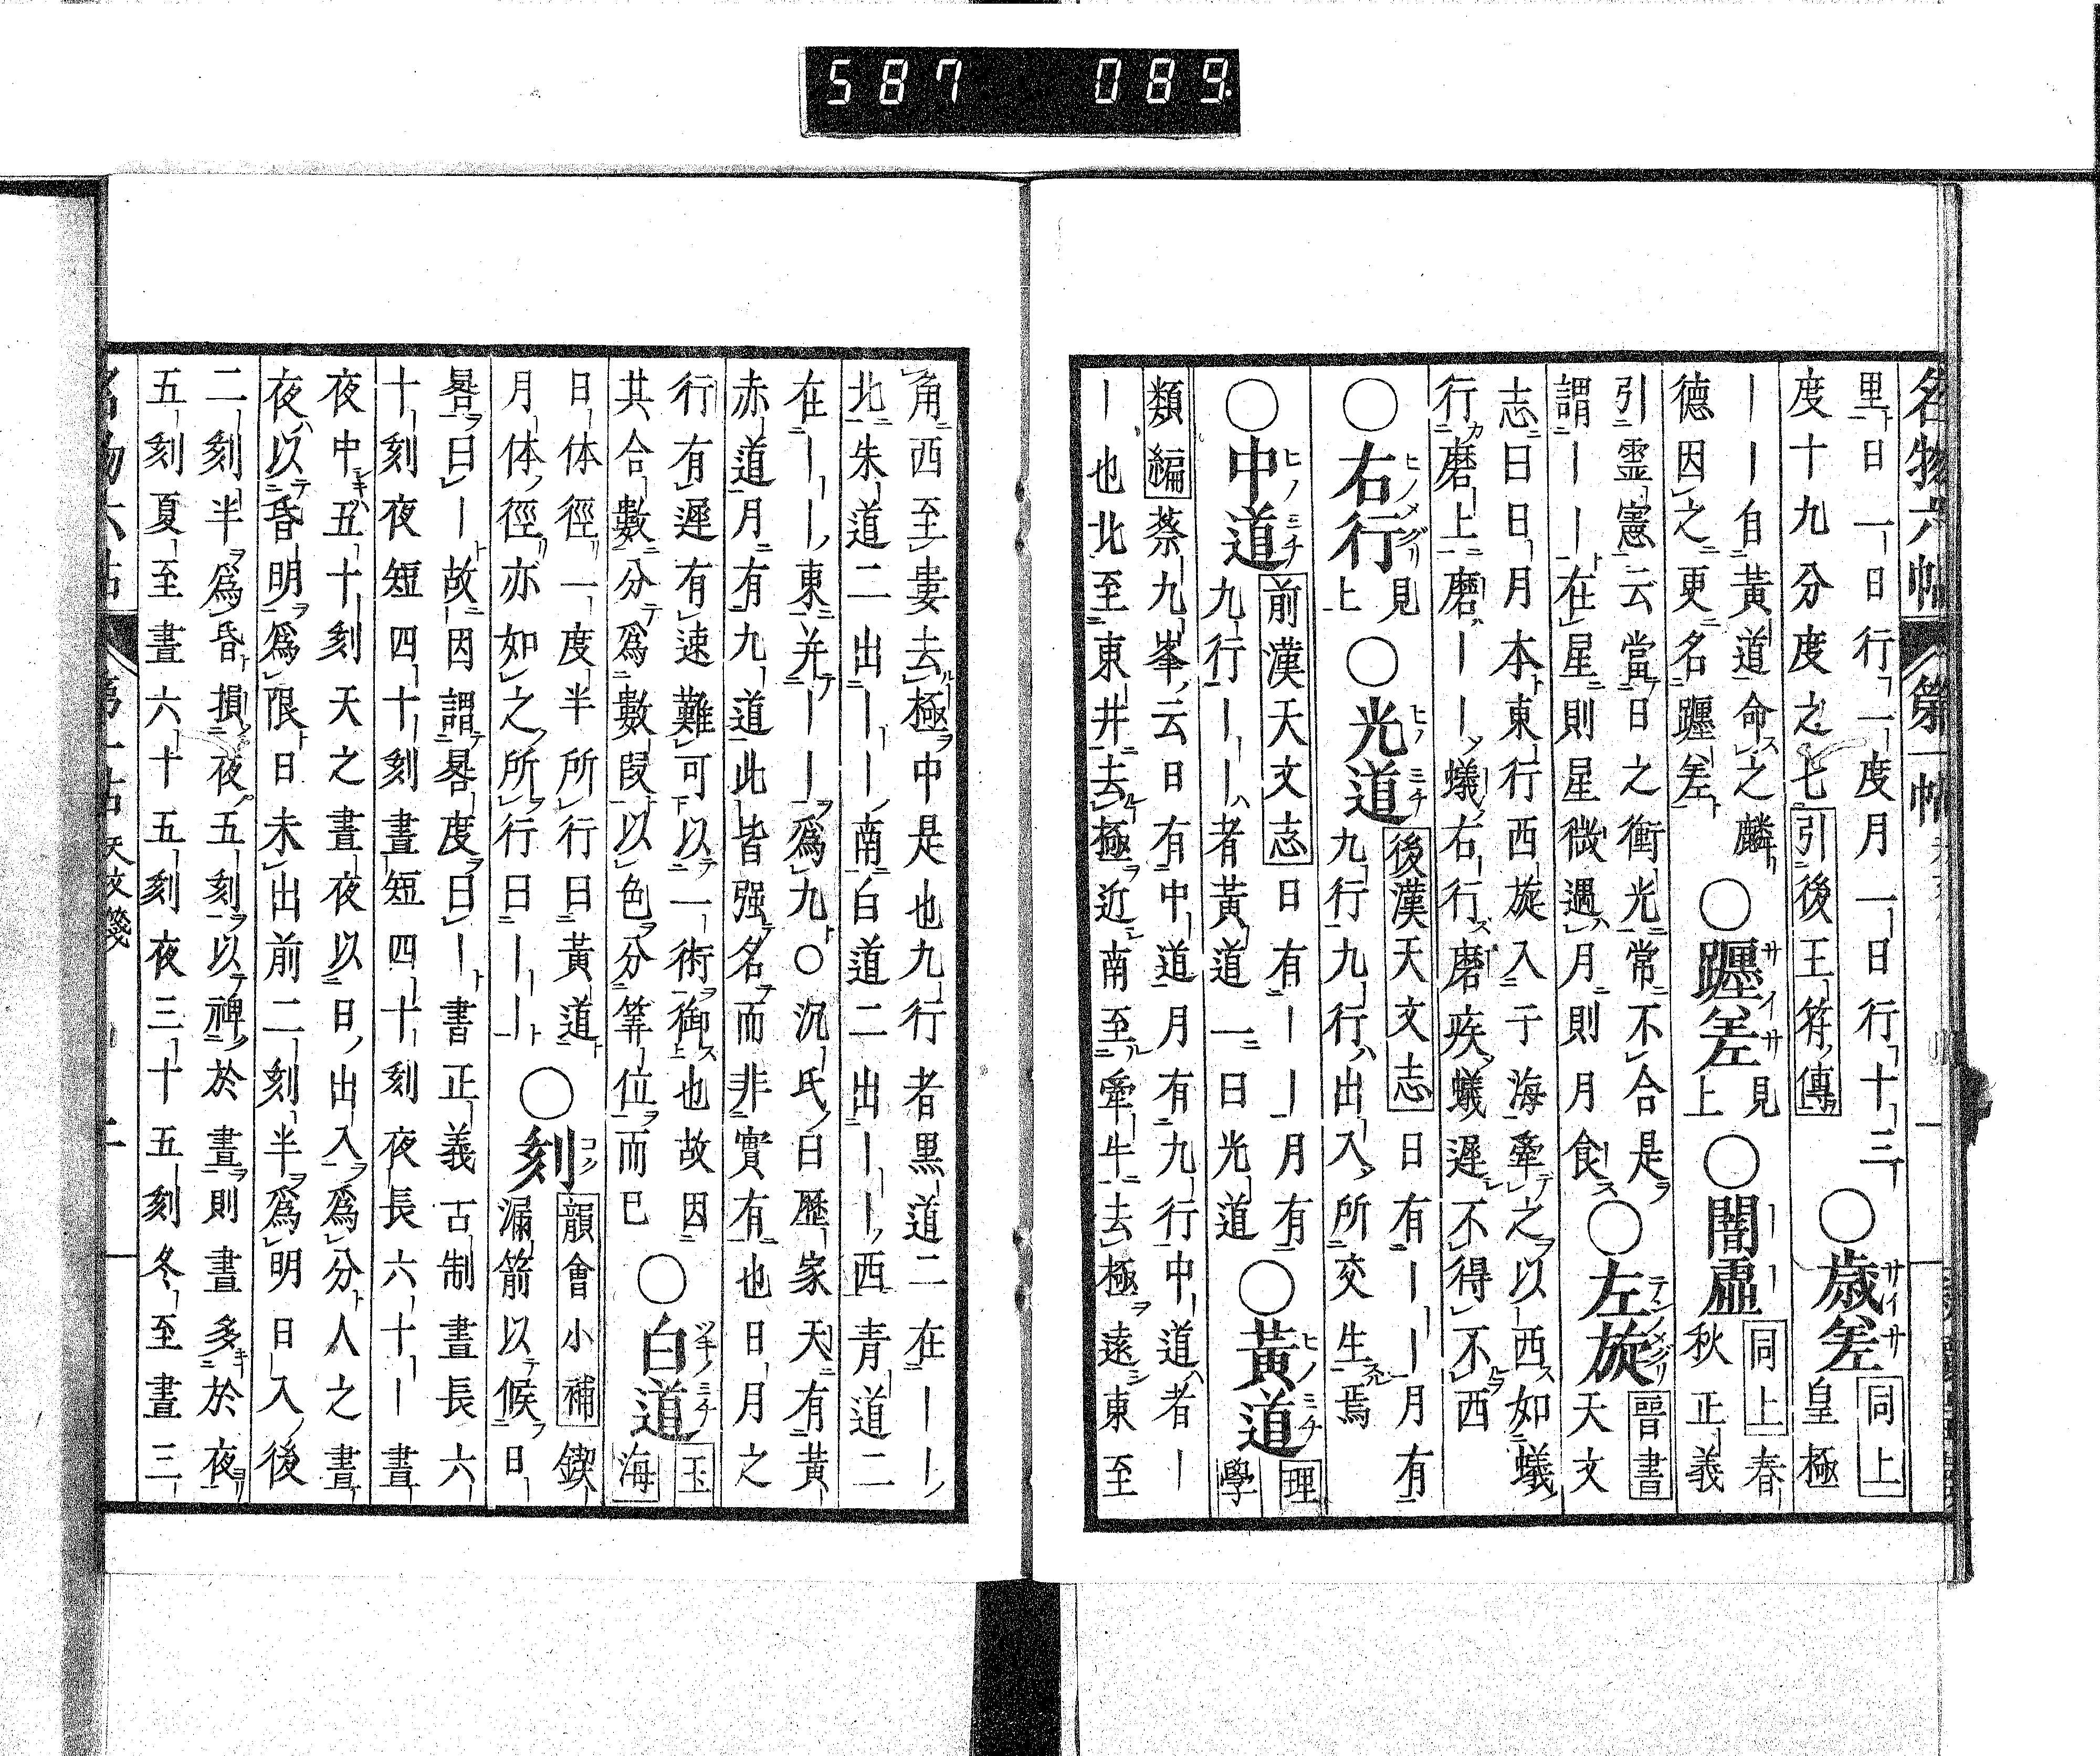 名物六帖 第一帖
里日一日行一度月一日行十三
度十九分度之七引後王符傳
○歲差 同上 皇極
｜｜自黃道命之麟
德因之更名躔差
○躔差 見上 ○闇虛 同上 春秋正義
引霊憲云當日之衝光常不合是
謂｜｜在星則星微遇月則月食
○左旋 晉書天文
志曰日月本東行西旋入于海牽之以｜西如蟻
行磨上磨｜｜蟻右行磨疾蟻遲不得不西
○右行 見上 ○光道 後漢天文志日有｜｜月有
九行九行出入所交生焉
○中道 前漢天文志日有｜｜月有
九行｜｜者黃道一曰光道
○黃道 理學
類編蔡九峯云日有中道月有九行中道者｜
｜也北至東井去極近南至牽牛去極遠東至
角西至婁去極中是也九行者黑道二在｜｜
北朱道二出｜｜南白道二出｜｜西青道二
在｜｜東并｜｜爲九○沉氏曰歷家天有黃
赤道月有九道此皆强名而非實有也日月之
行有遲有速難可以一術御也故因
其合數分爲數段以色分筭位而已
○白道 玉海
日体徑一度半所行日黃道
月体徑亦如之所行日｜｜
○刻 韻會小補鍥
漏箭以候日
晷日｜故因謂晷度日｜書正義古制晝長六
十刻夜短四十刻晝短四十刻夜長六十｜晝
夜中五十刻天之晝夜以日出入爲分人之晝
夜以昏明爲限日未出前二刻半爲明日入後
二刻半爲昏損夜五刻以禆於晝則晝多於夜
五刻夏至晝六十五刻夜三十五刻冬至晝三
587 089